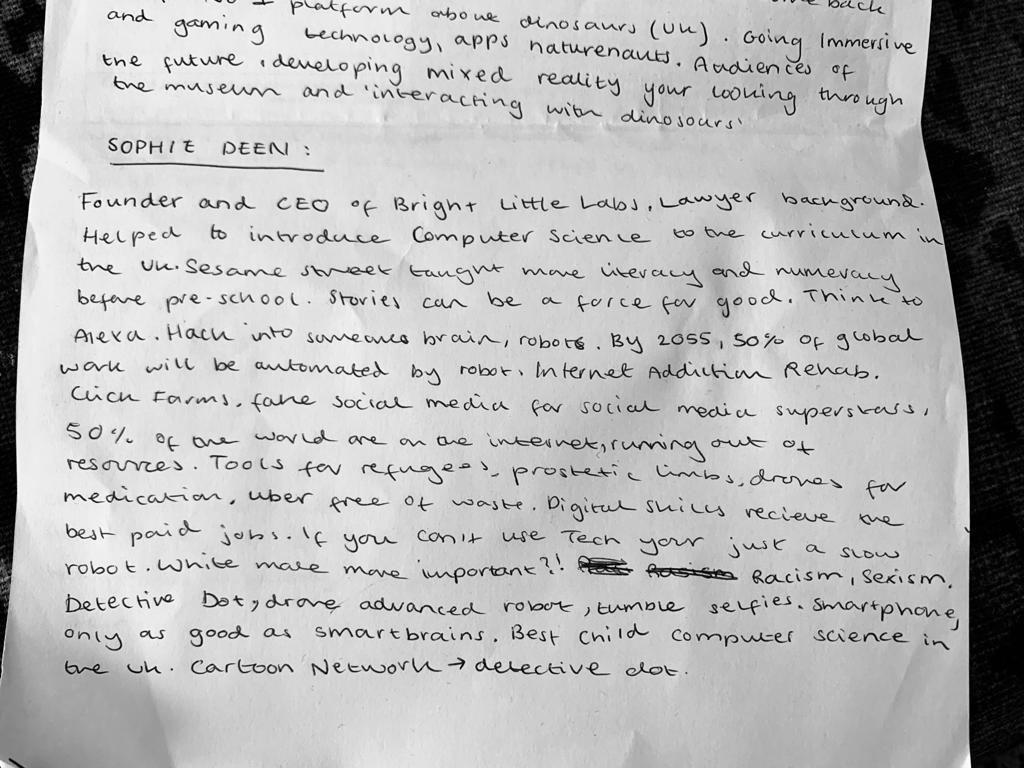 platform about dinosaurs (UK). Going Immersive back
and gaming technology, apps naturenauts. Audiences of
the future, developing mixed reality your looking through
the museum and 'interacting with dinosours'
SOPHIE DEEN:
Founder and CEO of Bright Little Labs. Lawyer background.
Helped to introduce Computer Science to the curriculum in
the UK. Sesame street taught more literacy and numeracy
before pre-school. Stories can be a force for good. Think to
Alexa. Hack into someones brain, robots. By 2055, 50% of global
work will be automated by robot. Internet Addiction Rehab.
Click Farms, fake social media for social media superstars,
50% of the world are on the internet, running out of
resources. Tools for refugees, prostetic limbs, drones for
medication, uber free of waste. Digital skills recieve the
best paid jobs. If you can't use Tech your just a slow
robot. White male more important?! Racism, Sexism.
Detective Dot, drone advanced robot, tumble selfies. Smartphone,
only as good as smartbrains. Best child computer science in
the UK. Cartoon Network → detective dot.